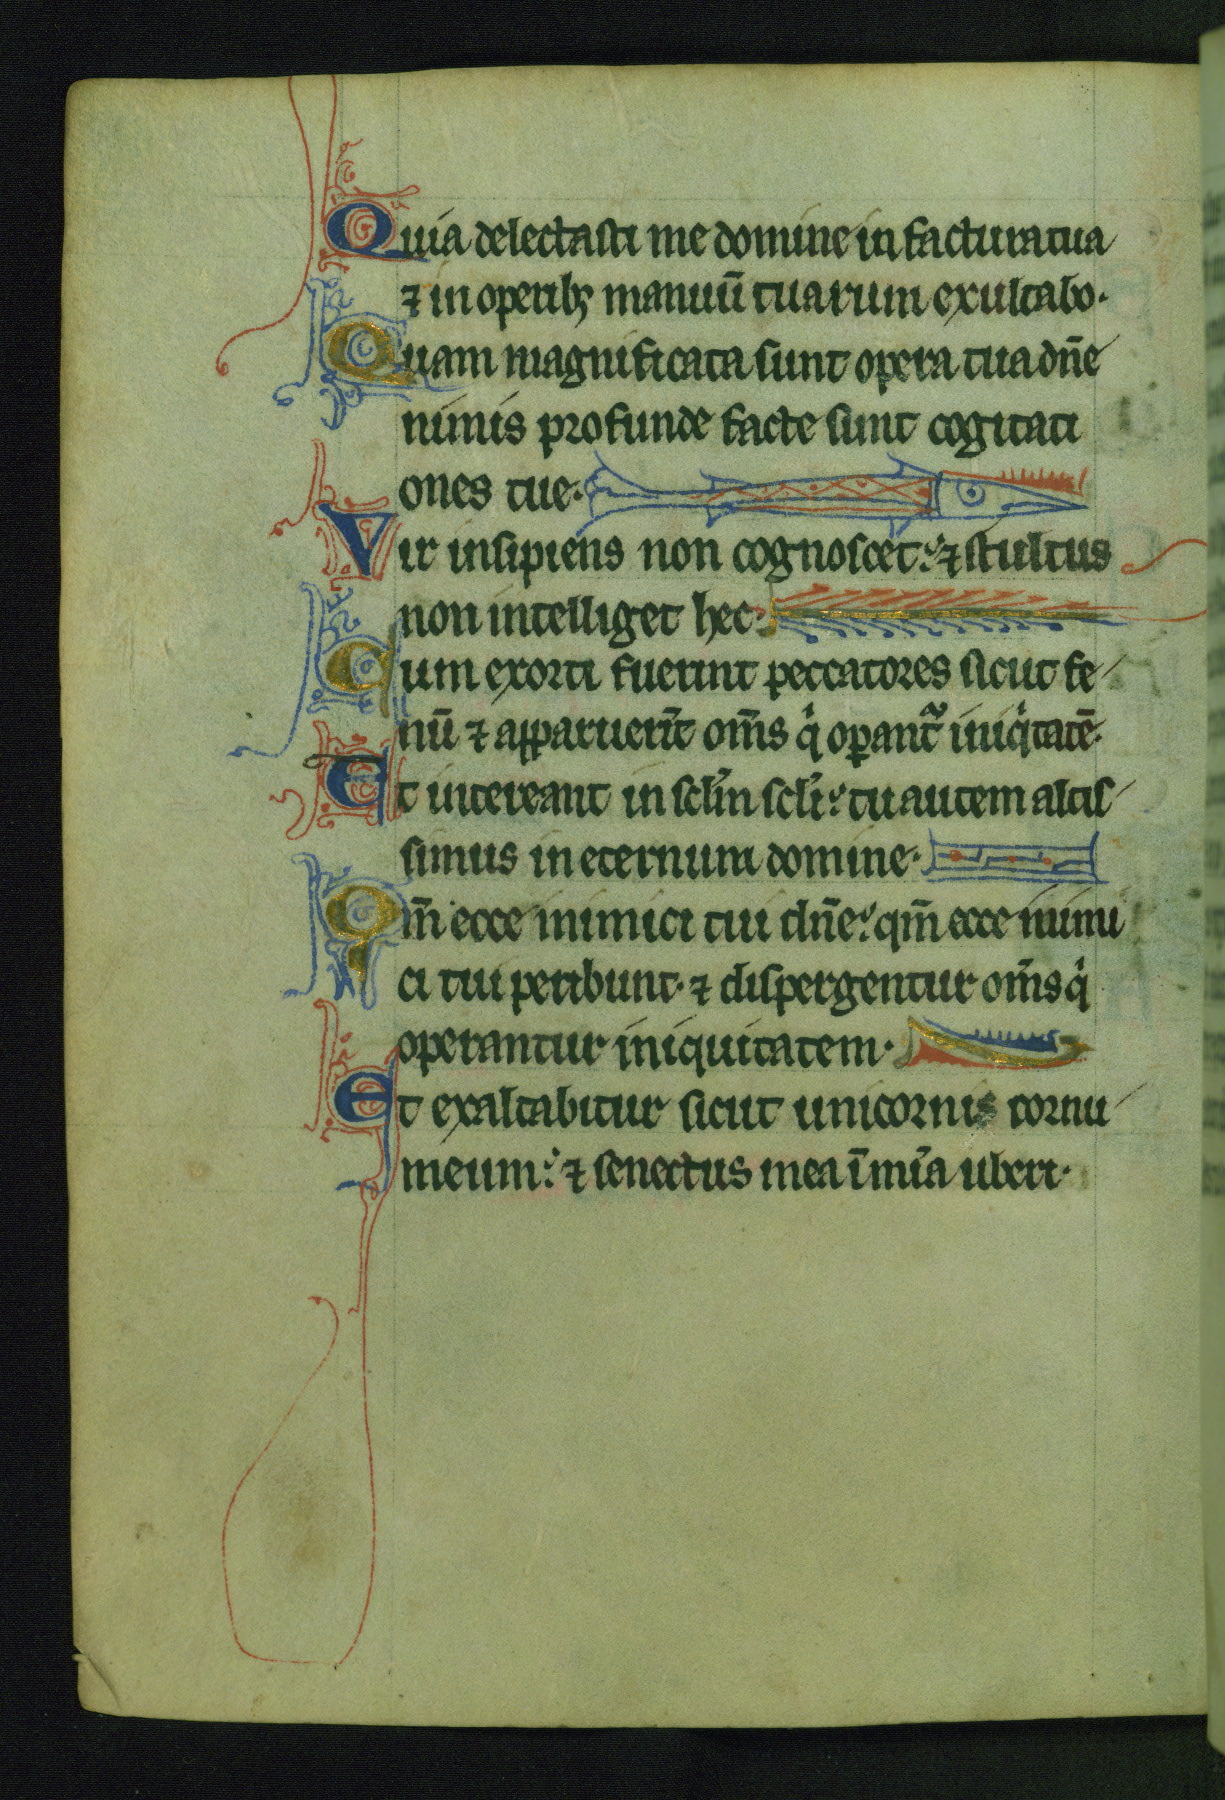 Quia delectasti me domine in factura tua
⁊ in operibꝫ manuū tuarum exultabo·
Quam magnificata sunt opera tua dn̄e
nimis profunde facte sunt cogitati
ones tue·
Vir insipiens non cognoscet: ⁊ stultus
non intelliget hec·
Cum exorti fuerint peccatores sicut fe
nū ⁊ apparuer̄t om̄s qͥ oꝑant᷑ iniqͥtatē·
Et intereant in sclm̄ scli: tu autem altis
simus in eternum domine·
Qm̄ ecce inimici tui dn̄e: qm̄ ecce inimi
ci tui peribunt· ⁊ dispergentur om̄s qͥ
operantur iniquitatem·
Et exaltabitur sicut unicornis cornu
meum: ⁊ senectus mea ī mīa uberi·